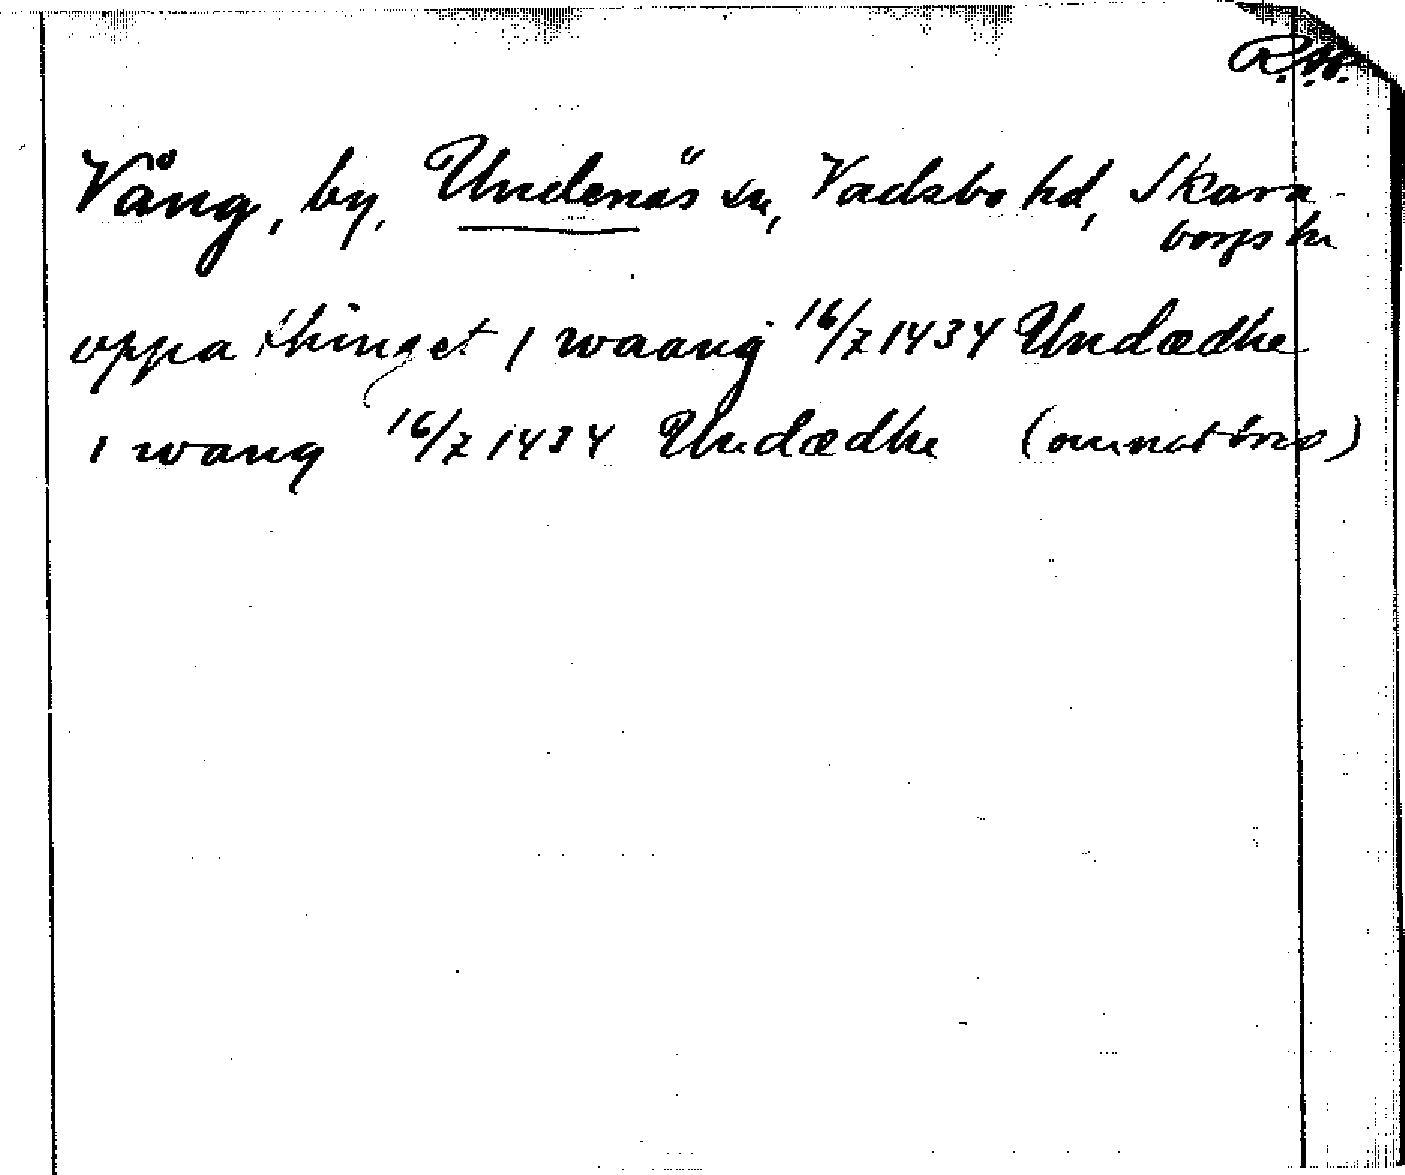 R.A.
Vång, by, Undenäs sn, Vadsbo hd, Skara-
borgs ln
oppa thinget i waang 16/2 1434 Undædhe
i wang 16/2 1434 Undædhe